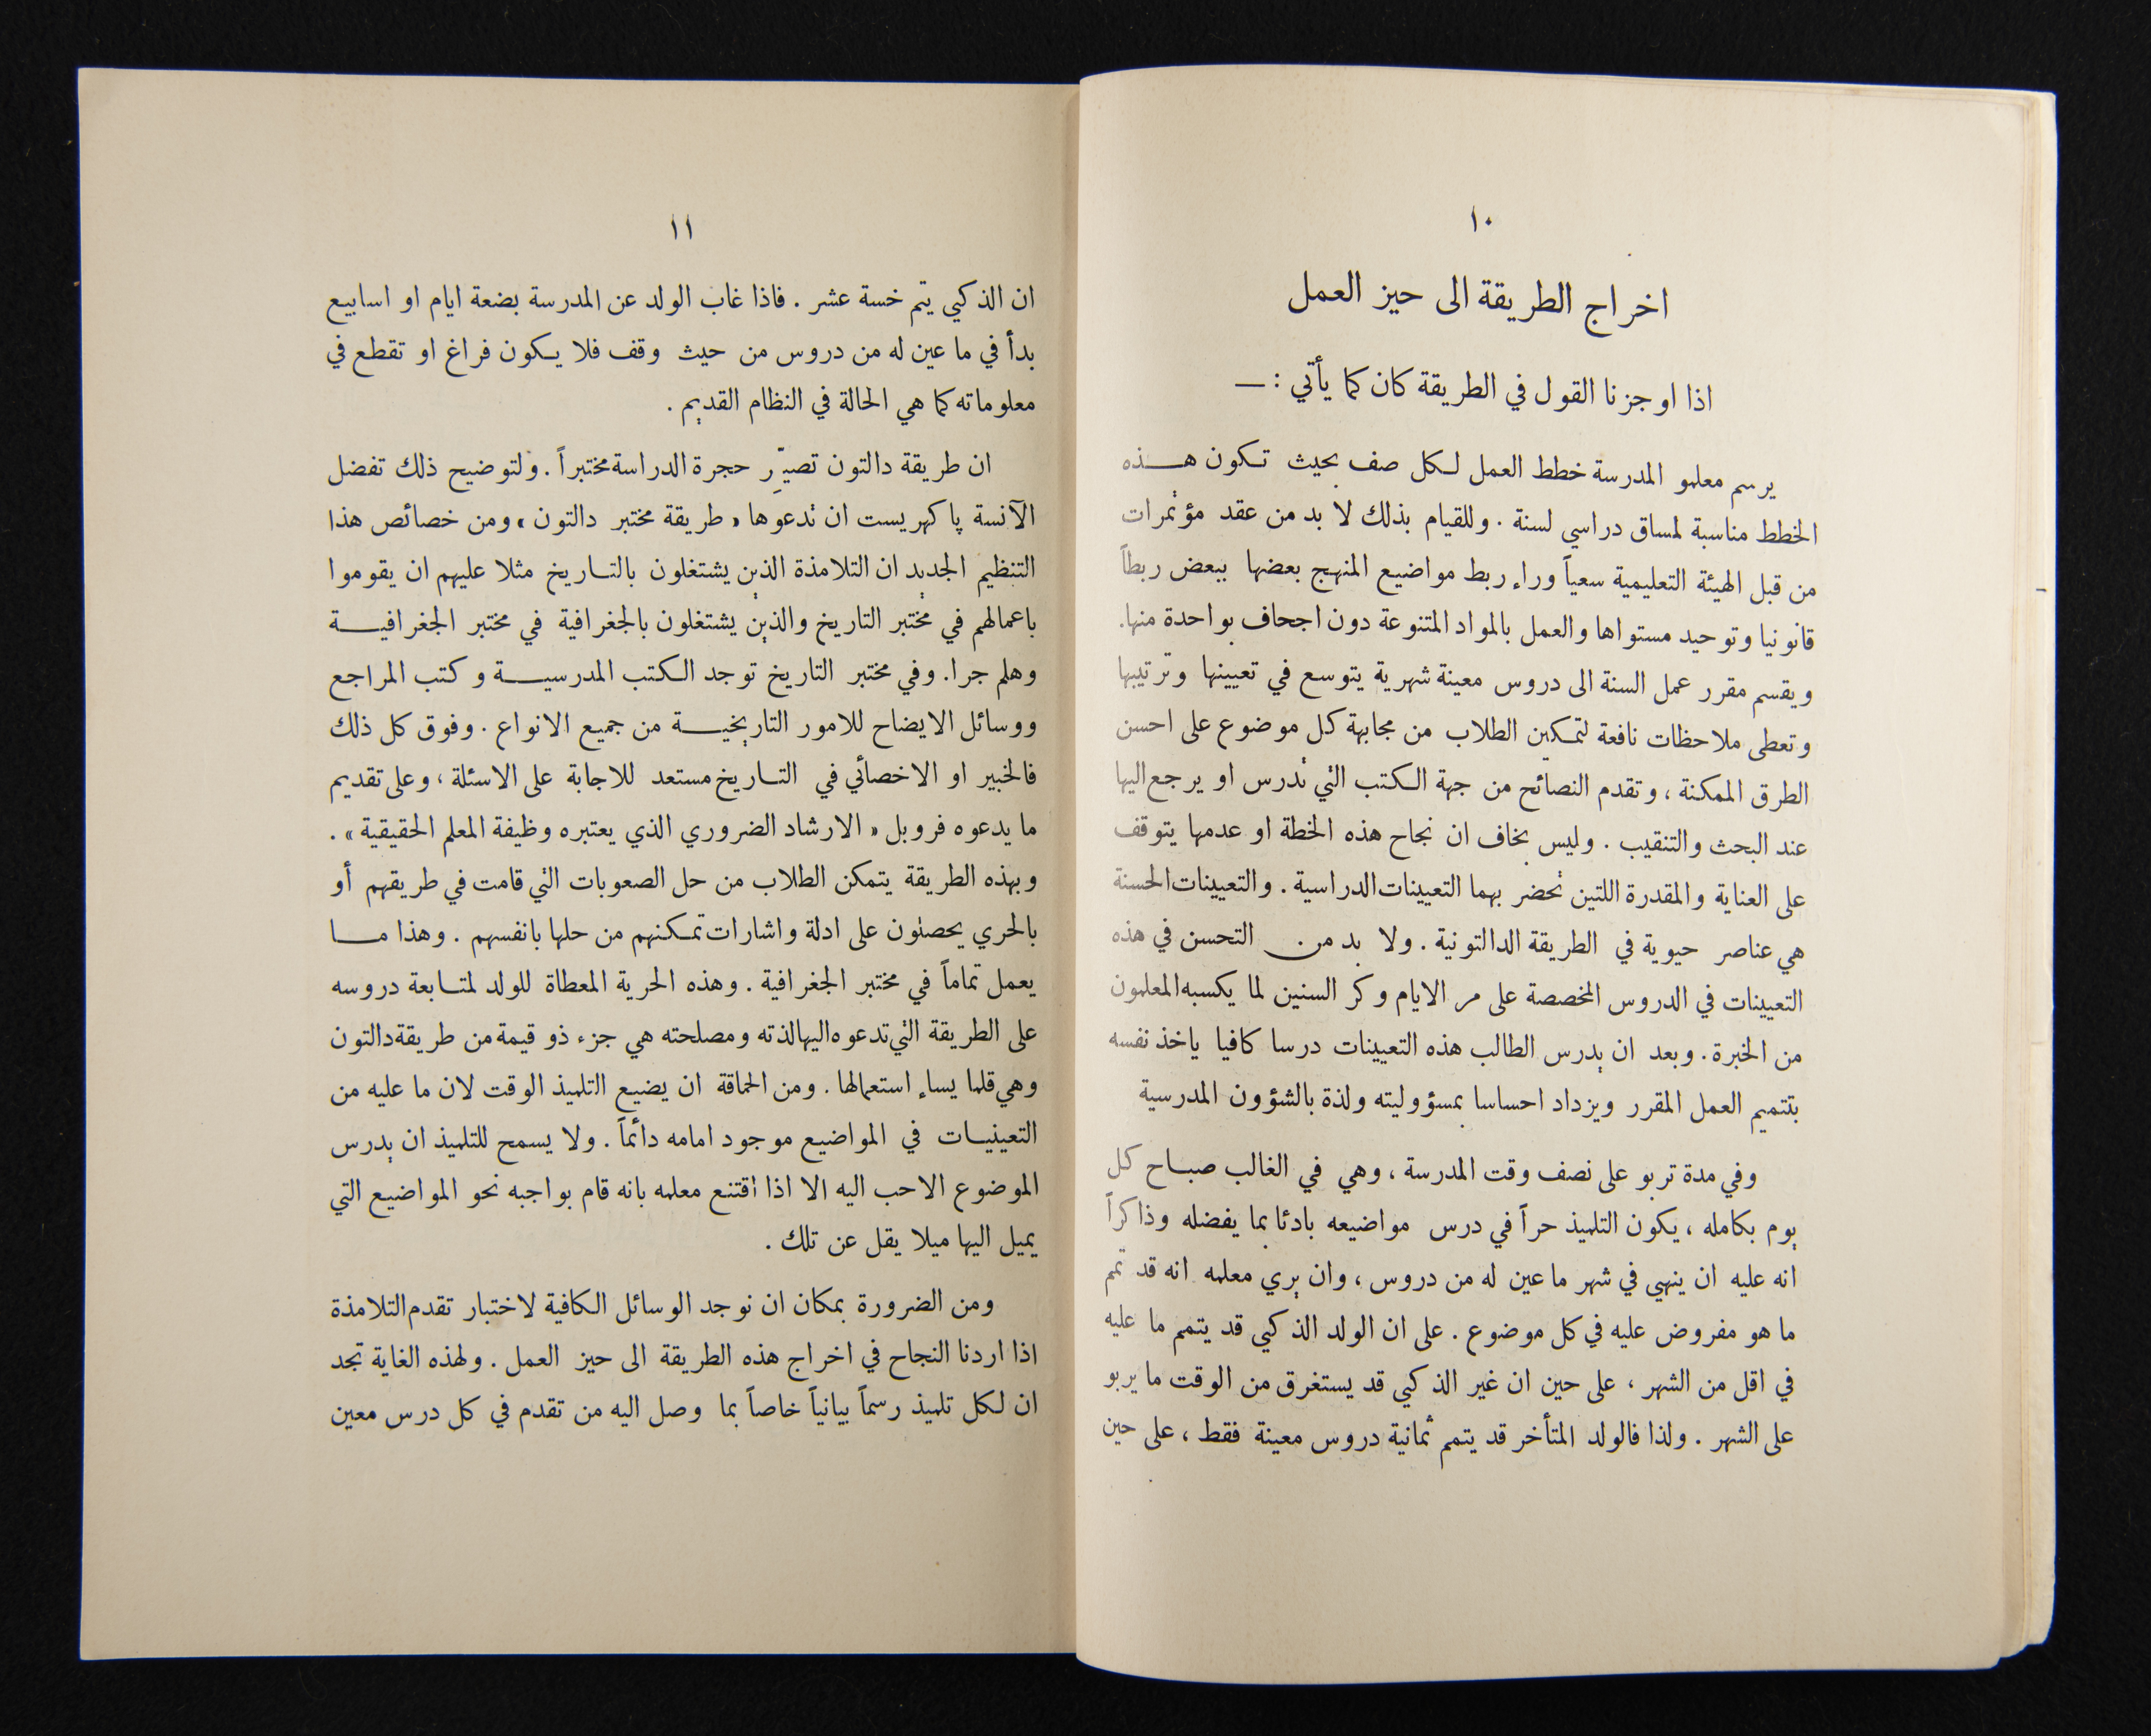 ١٠
اخراج الطريقة الى حيز العمل
اذا اوجزنا القول في الطريقة كان كما يأتي : —
يرسم معلمو المدرسة خطط العمل لكل صف بحيث تكون هـــذه
الخطط مناسبة لمساق دراسي لسنة . وللقيام بذلك لا بد من عقد مؤتمرات
من قبل الهيئة التعليمية سعياً وراء ربط مواضيع المنهج بعضها ببعض ربطاً
قانونيا وتوحيد مستواها والعمل بالمواد المتنوعة دون اجحاف بواحدة منها.
ويقسم مقرر عمل السنة الى دروس معينة شهرية يتوسع في تعيينها وترتيبها
وتعطى ملاحظات نافعة لتمكين الطلاب من مجابهة كل موضوع على احسن
الطرق الممكنة ، وتقدم النصائح من جهة الكتب التي تدرس او يرجع اليها
عند البحث والتنقيب . وليس بخاف ان نجاح هذه الخطة او عدمها يتوقف
على العناية والمقدرة اللتين تحضر بهما التعيينات الدراسية . والتعيينات الحسنة
هي عناصر حيوية في الطريقة الدالتونية . ولا بد من التحسن في هذه
التعيينات في الدروس المخصصة على مر الايام وكر السنين لما يكسبه المعلمون
من الخبرة . وبعد ان يدرس الطالب هذه التعيينات درسا كافيا ياخذ نفسه
بتتميم العمل المقرر ويزداد احساسا بمسؤوليته ولذة بالشؤون المدرسية
وفي مدة تربو على نصف وقت المدرسة ، وهي في الغالب صبـاح كل
يوم بكامله ، يكون التلميذ حراً في درس مواضيعه بادئا بما يفضله وذاكراً
انه عليه ان ينهي في شهر ما عين له من دروس ، وان يري معلمه انه قد تمم
ما هو مفروض عليه في كل موضوع . على ان الولد الذكي قد يتمم ما عليه
في اقل من الشهر ، على حين ان غير الذكي قد يستغرق من الوقت ما يربو
على الشهر . ولذا فالولد المتأخر قد يتمم ثمانية دروس معينة فقط ، على حين
١١
ان الذكي يتم خسة عشر . فاذا غاب الولد عن المدرسة بضعة ايام او اسابيع
بدأ في ما عين له من دروس من حيث وقف فلا يكون فراغ او تقطع في
معلوماته كما هي الحالة في النظام القديم .
ان طريقة دالتون تصيّر حجرة الدراسة مختبراً . ولتوضيح ذلك تفضل
الآنسة پاكهريست ان تدعوها « طريقة مختبر دالتون » ومن خصائص هذا
التنظيم الجديد ان التلامذة الذين يشتغلون بالتـاريخ مثلا عليهم ان يقوموا
باعمالهم في مختبر التاريخ والذين يشتغلون بالجغرافية في مختبر الجغرافيـــة
وهلم جرا. وفي مختبر التاريخ توجد الكتب المدرسيـــة وكتب المراجع
ووسائل الايضاح للامور التاريخيـــة من جميع الانواع . وفوق كل ذلك
فالخبير او الاخصائي في التـاريخ مستعد للاجابة على الاسئلة ، وعلى تقديم
ما يدعوه فروبل « الارشاد الضروري الذي يعتبره وظيفة المعلم الحقيقية » .
وبهذه الطريقة يتمكن الطلاب من حل الصعوبات التي قامت في طريقهم أو
بالحري يحصلون على ادلة واشارات تمكنهم من حلها بانفسهم . وهذا مـــا
يعمل تماماً في مختبر الجغرافية . وهذه الحرية المعطاة للولد لمتـابعة دروسه
على الطريقة التي تدعوه اليها لذته ومصلحته هي جزء ذو قيمة من طريقة دالتون
وهي قلما يساء استعمالها . ومن الحماقة ان يضيع التلميذ الوقت لان ما عليه من
التعينيـات في المواضيع موجود امامه دائماً . ولا يسمح للتلميذ ان يدرس
الموضوع الاحب اليه الا اذا اقتنع معلمه بانه قام بواجبه نحو المواضيع التي
يميل اليها ميلا يقل عن تلك .
ومن الضرورة بمكان ان نوجد الوسائل الكافية لاختبار تقدم التلامذة
اذا اردنا النجاح في اخراج هذه الطريقة الى حيز العمل . ولهذه الغاية تجد
ان لكل تلميذ رسماً بيانياً خاصاً بما وصل اليه من تقدم في كل درس معين